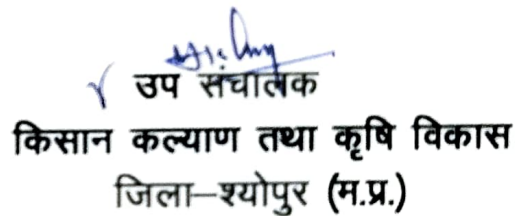 उप संचालक
किसान कल्याण तथा कृषि विकास
जिला–श्योपुर (म.प्र.)